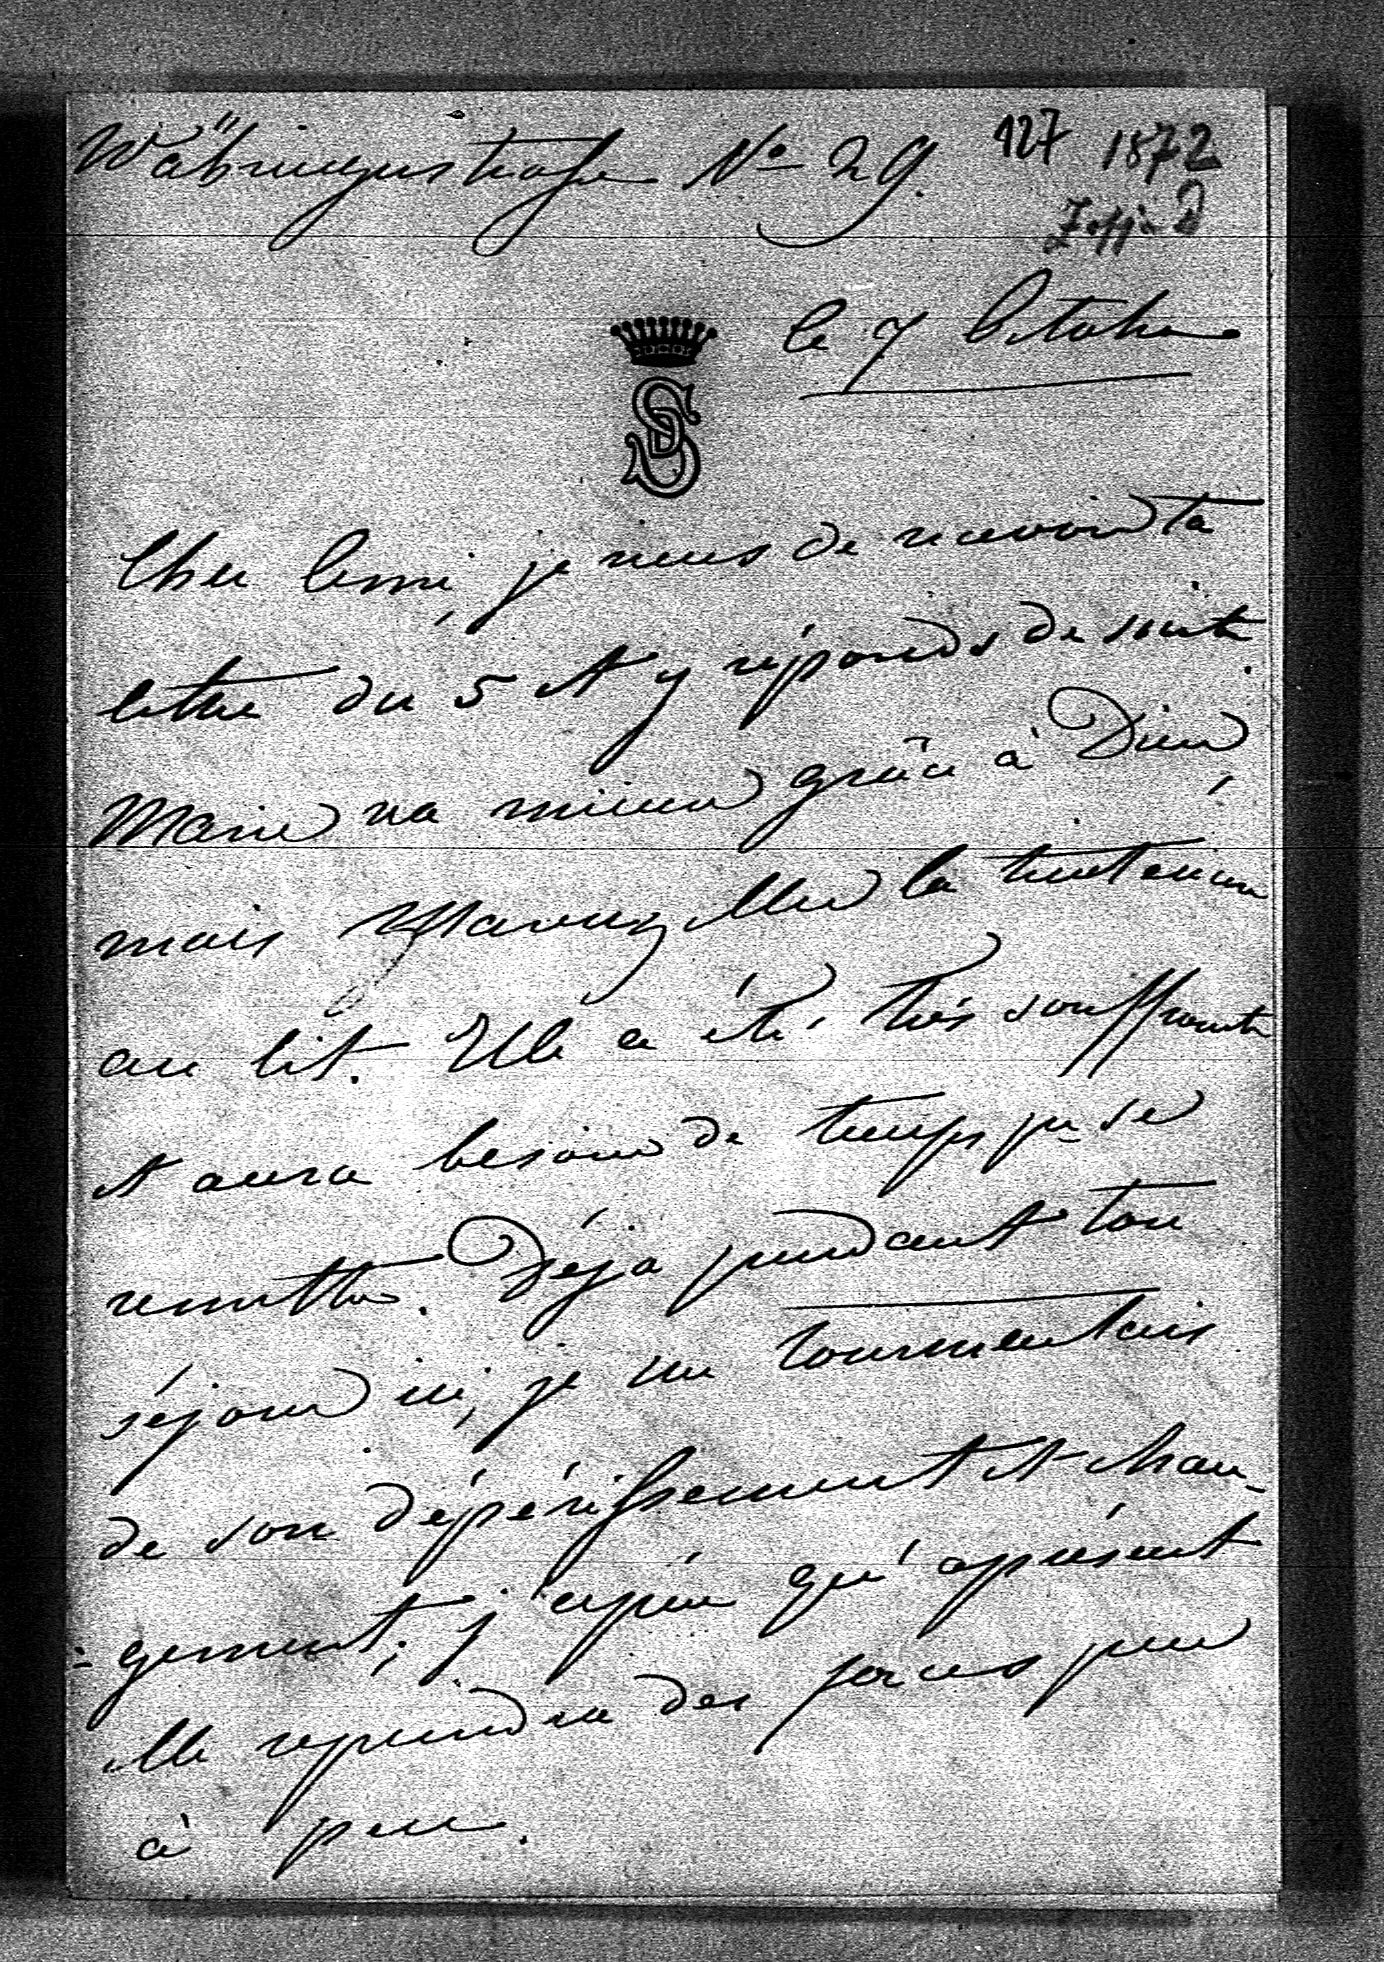 Währingerstraße No 29.
127 1872
le 7 Octobre
SD
Cher Ami, je viens de recevoir ta
lettre du 5 et y réponds de suite.
Marie va mieux grâce à Dieu,
mais elle la tient encore
au lit. Elle a été très souffrante
et aura besoin de temps pr se
remettre. Déjà pendant ton
séjour ici, je me tourmentais
de son dépérissement et chan-
-gement; j'espère qu'àprésent
elle reprendra des forces peu
à peu.